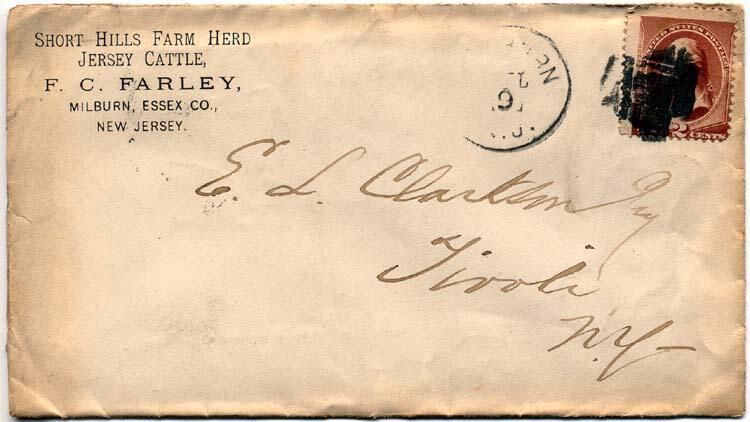 SHORT HILLS FARM HERD
JERSEY CATTLE,
F. C. FARLEY,
MILBURN, ESSEX CO.,
NEW JERSEY.
URN
N.J.
UNITED STATES POSTAGE
2 CENTS
E. L. Clarkson Esq
Tivoli
N.Y